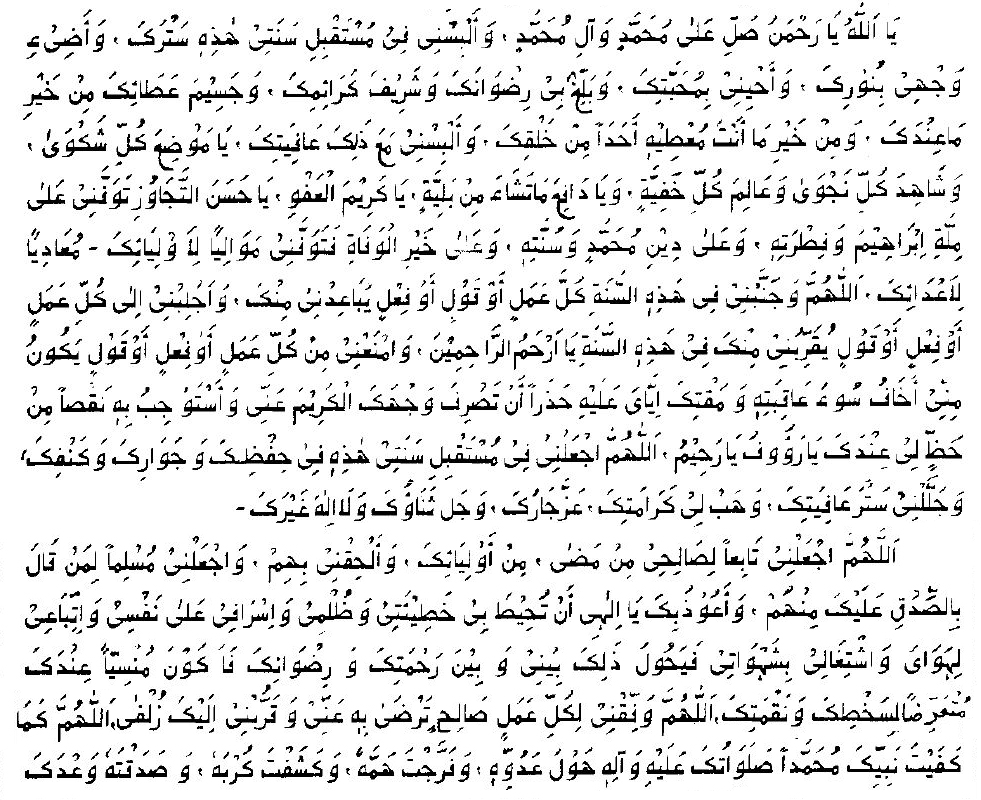 يَا اَللّٰهُ يَا رَحْمٰنُ صَلِّ عَلٰى مُحَمَّدٍ وَآلِ مُحَمَّدٍ، وَأَلْبِسْنِى فِىْ مُسْتَقْبِلِ سَنَتِىْ هٰذِهٖ سَتْرَكَ، وَأَضِىْءِ
وَجْهِىْ بِنُوْرِكَ، وَأَحْيِنِىْ بِمُحَبَّتِكَ، وَبَلِّغْ بِىْ رِضْوَانَكَ وَشَرِيْفَ كَرَائِمِكَ، وَجَسِيْمَ عَطَائِكَ مِنْ خَيْرِ
مَاعِنْدَكَ، وَمِنْ خَيْرِ مَا أَنْتَ مُعْطِيْهِ أَحَدًا مِنْ خَلْقِكَ، وَأَلْبِسْنِىْ مَعَ ذٰلِكَ عَافِيَتَكَ، يَا مَوْضِعَ كُلِّ شَكْوَىٰ،
وَشَاهِدَ كُلِّ نَجْوَىٰ وَعَالِمَ كُلِّ خَفِيَّةٍ، وَيَا دَافِعَ مَاتَشَاءُ مِنْ بَلِيَّةٍ، يَا كَرِيْمَ الْعَفْوِ، يَا حَسَنَ التَّجَاوُزِ تَوَفَّنِىْ عَلٰى
مِلَّةِ اِبْرَاهِيْمَ وَفِطْرَتِهٖ، وَعَلٰى دِيْنِ مُحَمَّدٍ وَسُنَّتِهٖ، وَعَلٰى خَيْرِ الْوَفَاةِ فَتَوَفَّنِىْ مَوَالِيًا لِاَوْلِيَائِكَ - مُعَادِيًا
لِاَعْدَائِكَ، اَللّٰهُمَّ وَجَنِّبْنِىْ فِى هٰذِهٖ السَّنَةِ كُلَّ عَمَلٍ أَوْ قَوْلٍ أَوْ فِعْلٍ يُبَاعِدُنِىْ مِنْكَ، وَاَجْلِبْنِىْ اِلٰى كُلِّ عَمَلٍ
أَوْ فِعْلٍ أَوْ قَوْلٍ يُقَرِّبُنِىْ مِنْكَ فِىْ هٰذِهٖ السَّنَةِ يَا أَرْحَمَ الرَّاحِمِيْنَ، وَامْنَعْنِىْ مِنْ كُلِّ عَمَلٍ أَوْ فِعْلٍ أَوْ قَوْلٍ يَكُوْنُ
مِنِّىْ أَخَافُ سُوْءَ عَاقِبَتِهٖ وَ مَقْتِكَ اِيَّاىَ عَلَيْهِ حَذَرًا أَنْ تَصْرِفَ وَجْهَكَ الْكَرِيْمَ عَنِّى وَأَسْتَوْجِبُ بِهٖ نَقْصًا مِنْ
حَظٍّ لِىْ عِنْدَكَ يَا رَؤُوفُ يَا رَحِيْمُ، اَللّٰهُمَّ اجْعَلْنِىْ فِىْ مُسْتَقْبِلِ سَنَتِىْ هٰذِهٖ فِىْ حِفْظِكَ وَ جَوَارِكَ وَكَنَفِكَ،
وَجَلِّلْنِىْ سَتْرَ عَافِيَتِكَ، وَهَبْ لِىْ كَرَامَتِكَ، عَزَّ جَارُكَ، وَجَلَّ ثَنَاؤُكَ وَلَا اِلٰهَ غَيْرُكَ -
اَللّٰهُمَّ اجْعَلْنِىْ تَابِعًا لِصَالِحِىْ مِنْ مَضٰى، مِنْ أَوْلِيَائِكَ، وَأَلْحِقْنِىْ بِهِمْ، وَاجْعَلْنِىْ مُسْلِمًا لِمَنْ قَالَ
بِالصِّدْقِ عَلَيْكَ مِنْهُمْ، وَأَعُوْذُبِكَ يَا اِلٰهِى أَنْ تُحِيْطَ بِىْ خَطِيْئَتِىْ وَظُلْمِىْ وَاِسْرَافِىْ عَلٰى نَفْسِىْ وَاِتِّبَاعِىْ
لِهَوَاىَ وَاشْتِغَالِىْ بِشَهَوَاتِىْ فَيَحُولَ ذٰلِكَ بَيْنِىْ وَ بَيْنَ رَحْمَتِكَ وَ رِضْوَانِكَ فَاَكُوْنَ مُنْسِيًّا عِنْدَكَ
مُتَعَرِّضًا لِسَخَطِكَ وَنَقْمَتِكَ، اَللّٰهُمَّ وَفِّقْنِىْ لِكُلِّ عَمَلٍ صَالِحٍ تَرْضٰى بِهٖ عَنِّىْ وَ قَرِّبْنِىْ اِلَيْكَ زُلْفٰى، اَللّٰهُمَّ كَمَا
كَفَيْتَ نَبِيَّكَ مُحَمَّدًا صَلَوَاتُكَ عَلَيْهِ وَآلِهٖ هَوْلَ عَدُوِّهٖ، وَفَرَّجْتَ هَمَّهٗ، وَكَشَفْتَ كُرْبَهٗ، وَ صَدَقْتَهٗ وَعْدَكَ